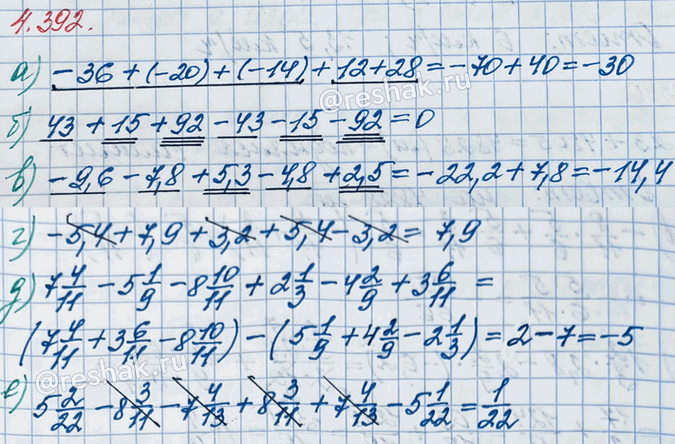 4.392.
а) -36 + (-20) + (-14) + 12 + 28 = -70 + 40 = -30
@reshak.ru
б) 43 + 15 + 92 - 43 - 15 - 92 = 0
в) -9,6 - 7,8 + 5,3 - 4,8 + 2,5 = -22,2 + 7,8 = -14,4
г) -5,4 + 7,9 + 3,2 + 5,4 - 3,2 = 7,9
д) 7 4/11 - 5 1/9 - 8 10/11 + 2 1/3 - 4 2/9 + 3 6/11 =
(7 4/11 + 3 6/11 - 8 10/11) - (5 1/9 + 4 2/9 - 2 1/3) = 2 - 7 = -5
@reshak.ru
е) 5 2/22 - 8 3/11 - 7 4/13 + 8 3/11 + 7 4/13 - 5 1/22 = 1/22